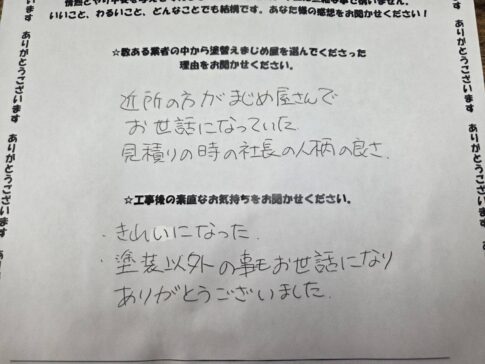 いいこと、わるいこと、どんなことでも結構です。あなた様の感想をお聞かせください！
☆数ある業者の中から塗替えまじめ屋を選んでくださった
理由をお聞かせください。
近所の方がまじめ屋さんで
お世話になっていた
見積りの時の社長の人柄の良さ.
☆工事後の素直なお気持ちをお聞かせください。
・きれいになった.
・塗装以外の事もお世話になり
ありがとうございました.
ありがとうございます
ありがとうございます
ありがとうございます
ありがとうございます